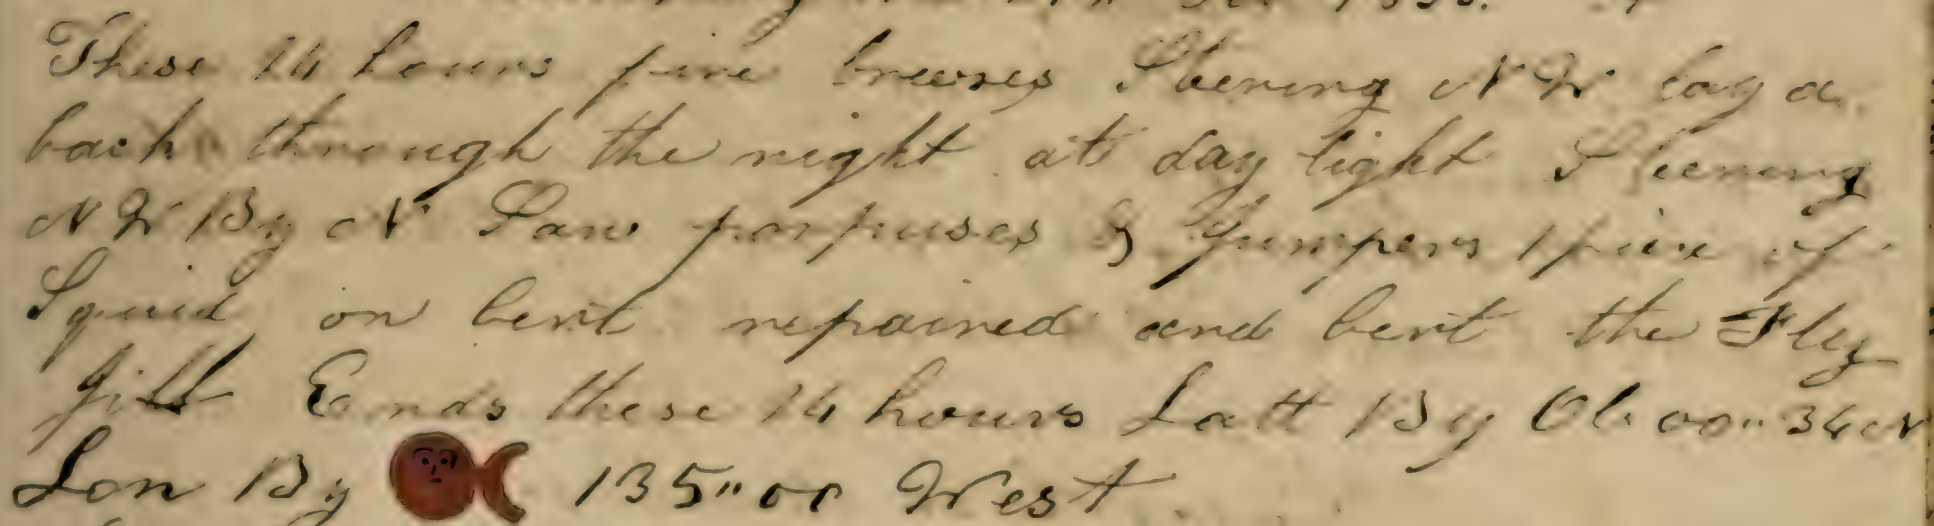 These 24 hours fine breeses Steering N W lay a
back through the night at day light Steering
N W By N Saw porpuses & Jumpers 1 piece of
Squid on bent repaired and bent the Fly
Jibb Eends these 24 hours Latt By Ob 00" 34 N
Lon By 135" 00 West